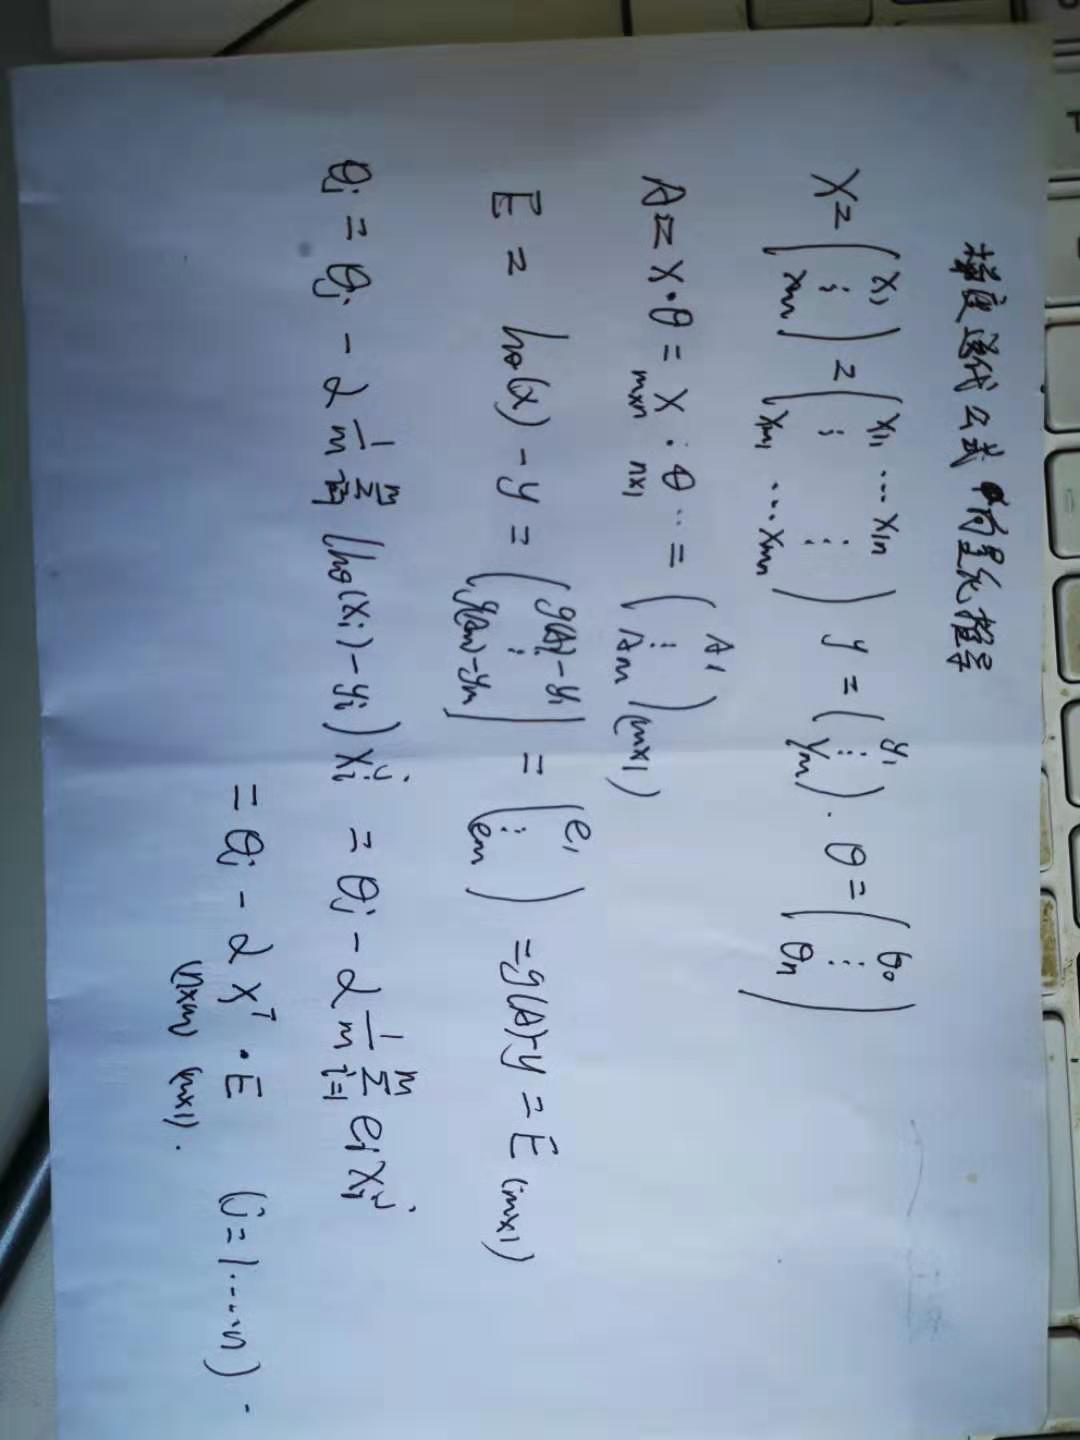 梯度迭代公式向量化推导
X = (x₁ ⋮ xₘ) = (x₁₁ ⋯ x₁ₙ ⋮ ⋮ xₘ₁ ⋯ xₘₙ) y = (y₁ ⋮ yₘ). θ = (θ₀ ⋮ θₙ)
A = X·θ = X · θ ·· = (A₁ ⋮ Aₘ) (m×1)
m×n n×1
E = hθ(x) - y = (g(A₁)-y₁ ⋮ g(Aₘ)-yₘ) = (e₁ ⋮ eₘ) = g(A)-y = E (m×1)
θj = θj - α 1/m Σᵢ₌₁ᵐ (hθ(xᵢ)-yᵢ) xᵢʲ = θj - α 1/m Σᵢ₌₁ᵐ eᵢxᵢʲ
= θj - α Xᵀ · E (j=1.....n) -
(n×m) (m×1).